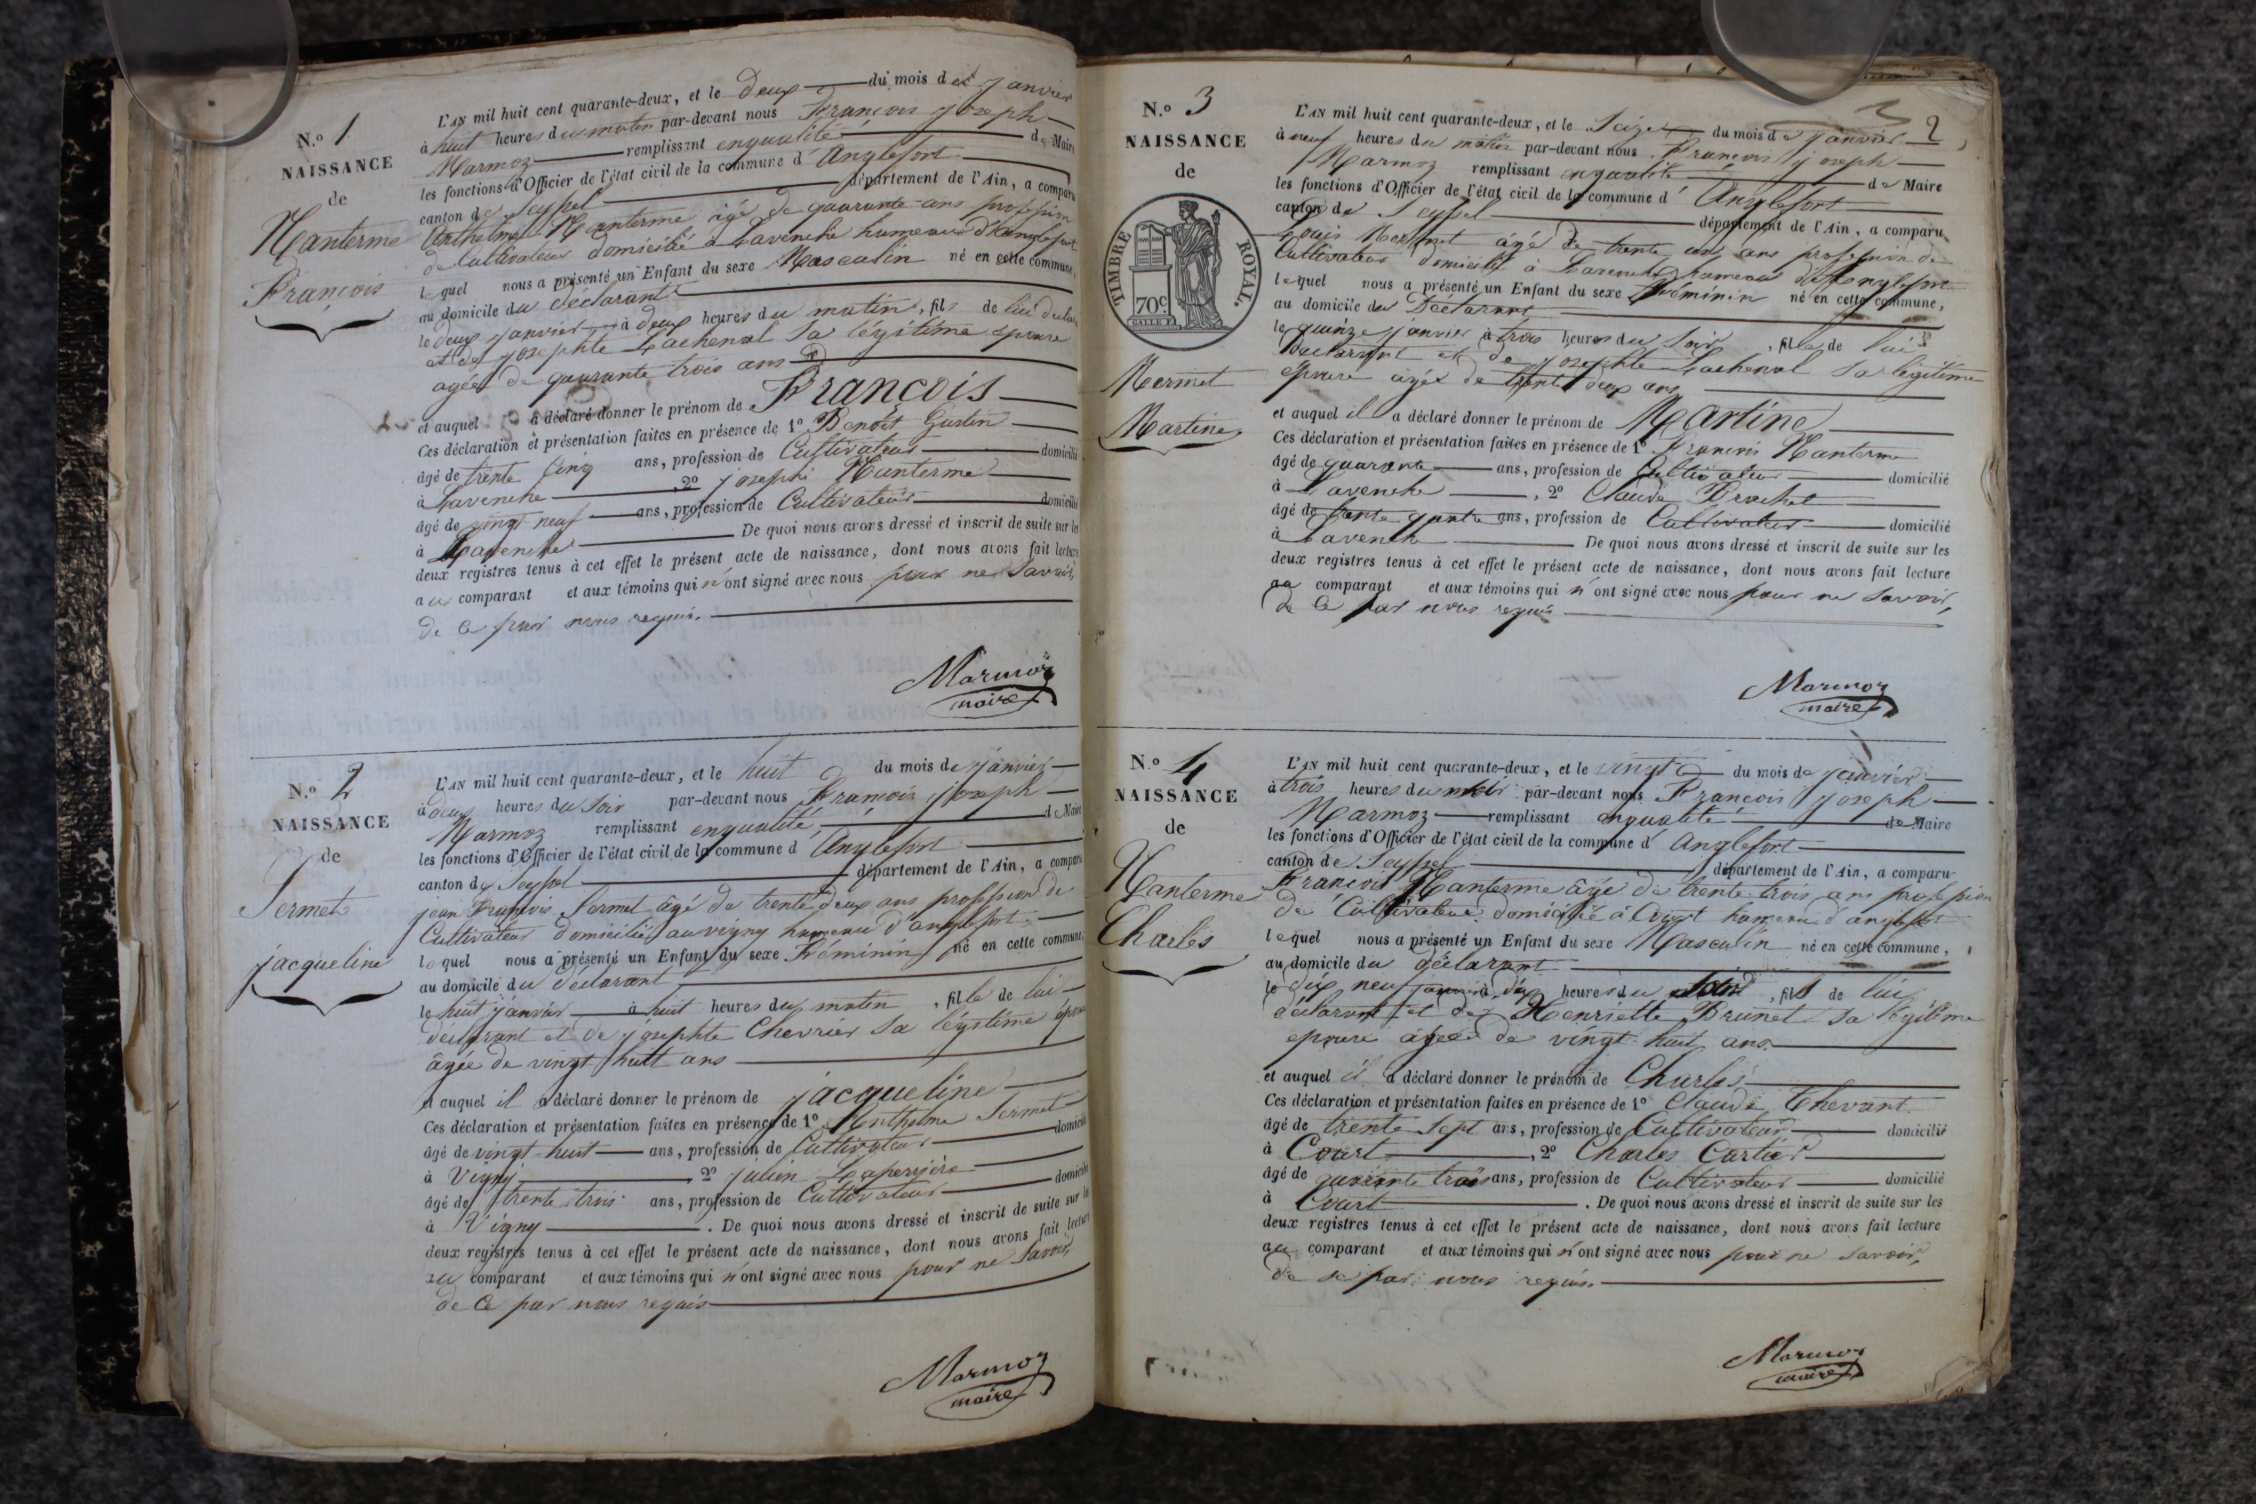 N.o 1
NAISSANCE
de
Nanterme
François
L'AN mil huit cent quarante-deux, et le deux du mois de janvier
à huit heures du matin par-devant nous François joseph
Marmoz remplissant enqualité de Maire
les fonctions d'Officier de l'état civil de la commune d'Anglefort
canton de Seyssel département de l'Ain, a comparu
Anthelme Nanterme âgé de quarante ans profession
de Cultivateur domicilié à Lavenche hameau d'anglefort
lequel nous a présenté un Enfant du sexe Masculin né en cette commune,
au domicile du déclarant
le deux janvier à deux heures du matin, fils de lui
et de josephte Lachenal sa légitime epouse
agée de quarante trois ans
et auquel a déclaré donner le prénom de François
Ces déclaration et présentation faites en présence de 1o Benoit Gustin
âgé de trente cinq ans, profession de Cultivateur domicilié
à Lavenche, 2o joseph Nanterme
âgé de vingt neuf ans, profession de Cultivateur domicilié
à Lavenche De quoi nous avons dressé et inscrit de suite sur les
deux registres tenus à cet effet le présent acte de naissance, dont nous avons fait lecture
au comparant et aux témoins qui n'ont signé avec nous pour ne savoir,
de ce par nous requis.
Marmoz
maire
N.o 2
NAISSANCE
de
Sermet
jacqueline
L'AN mil huit cent quarante-deux, et le huit du mois de janvier
à deux heures du soir par-devant nous François joseph
Marmoz remplissant enqualité, de Maire
les fonctions d'Officier de l'état civil de la commune d Anglefort
canton de Seyssel département de l'Ain, a comparu
jean François Sermet agé de trente deux ans profession de
Cultivateur domicilié au vigny hameau d'anglefort
lequel nous a présenté un Enfant du sexe Féminin né en cette commune,
au domicile du déclarant
le huit janvier à huit heures du matin, fille de lui
déclarant et de josephte Chevrier sa légitime épouse
âgée de vingt huit ans
et auquel il a déclaré donner le prénom de jacqueline
Ces déclaration et présentation faites en présence de 1o Anthelme Sermet
âgé de vingt-huit ans, profession de Cultivateur domicilié
à Vigny, 2o julien
âgé de trente trois ans, profession de Cultivateur domicilié
à Vigny. De quoi nous avons dressé et inscrit de suite sur les
deux registres tenus à cet effet le présent acte de naissance, dont nous avons fait lecture
au comparant et aux témoins qui n'ont signé avec nous pour ne savoir,
de ce par nous requis
Marmoz
maire
2
N.o 3
NAISSANCE
de
TIMBRE ROYAL.
70c
Mermet
Martine
L'AN mil huit cent quarante-deux, et le Seize du mois de janvier
à neuf heures du matin par-devant nous François joseph
Marmoz remplissant enqualité de Maire
les fonctions d'Officier de l'état civil de la commune d'Anglefort
canton de Seyssel département de l'Ain, a comparu
Louis Mermet âgé de trente ans profession de
Cultivateur domicilié à Lavenche hameau d'Anglefort
lequel nous a présenté un Enfant du sexe Féminin né en cette commune,
au domicile du Déclarant
le quinze janvier à trois heures du soir, fille de lui
Declarant et de josephte Lachenal sa légitime
epouse âgée de trente deux ans
et auquel il a déclaré donner le prénom de Martine
Ces déclaration et présentation faites en présence de 1o François Nanterme
âgé de quarante ans, profession de Cultivateur domicilié
à Lavenche, 2o Claude Brachet
âgé de trente quatre ans, profession de Cultivateur domicilié
à Lavenche De quoi nous avons dressé et inscrit de suite sur les
deux registres tenus à cet effet le présent acte de naissance, dont nous avons fait lecture
au comparant et aux témoins qui n'ont signé avec nous pour ne savoir,
de ce par nous requis
Marmoz
maire
N.o 4
NAISSANCE
de
Nanterme
Charles
L'AN mil huit cent quarante-deux, et le vingt du mois de janvier
à trois heures du par-devant nous François joseph
Marmoz remplissant enqualité de Maire
les fonctions d'Officier de l'état civil de la commune d'Anglefort
canton de Seyssel département de l'Ain, a comparu
François Nanterme âgé de trente trois ans profession
de Cultivateur domicilié à Court hameau d'anglefort
lequel nous a présenté un Enfant du sexe Masculin né en cette commune,
au domicile du déclarant
le dix neuf janvier à dix heures du soir, fils de lui
déclarant et de Henriette Brunet sa légitime
epouse âgée de vingt-huit ans.
et auquel il a déclaré donner le prénom de Charles
Ces déclaration et présentation faites en présence de 1o Claude Thevant
âgé de trente sept ans, profession de Cultivateur domicilié
à Court, 2o Charles Cartier
âgé de quarante trois ans, profession de Cultivateur domicilié
à Court. De quoi nous avons dressé et inscrit de suite sur les
deux registres tenus à cet effet le présent acte de naissance, dont nous avons fait lecture
au comparant et aux témoins qui n'ont signé avec nous pour ne savoir,
de ce par nous requis.
Marmoz
maire